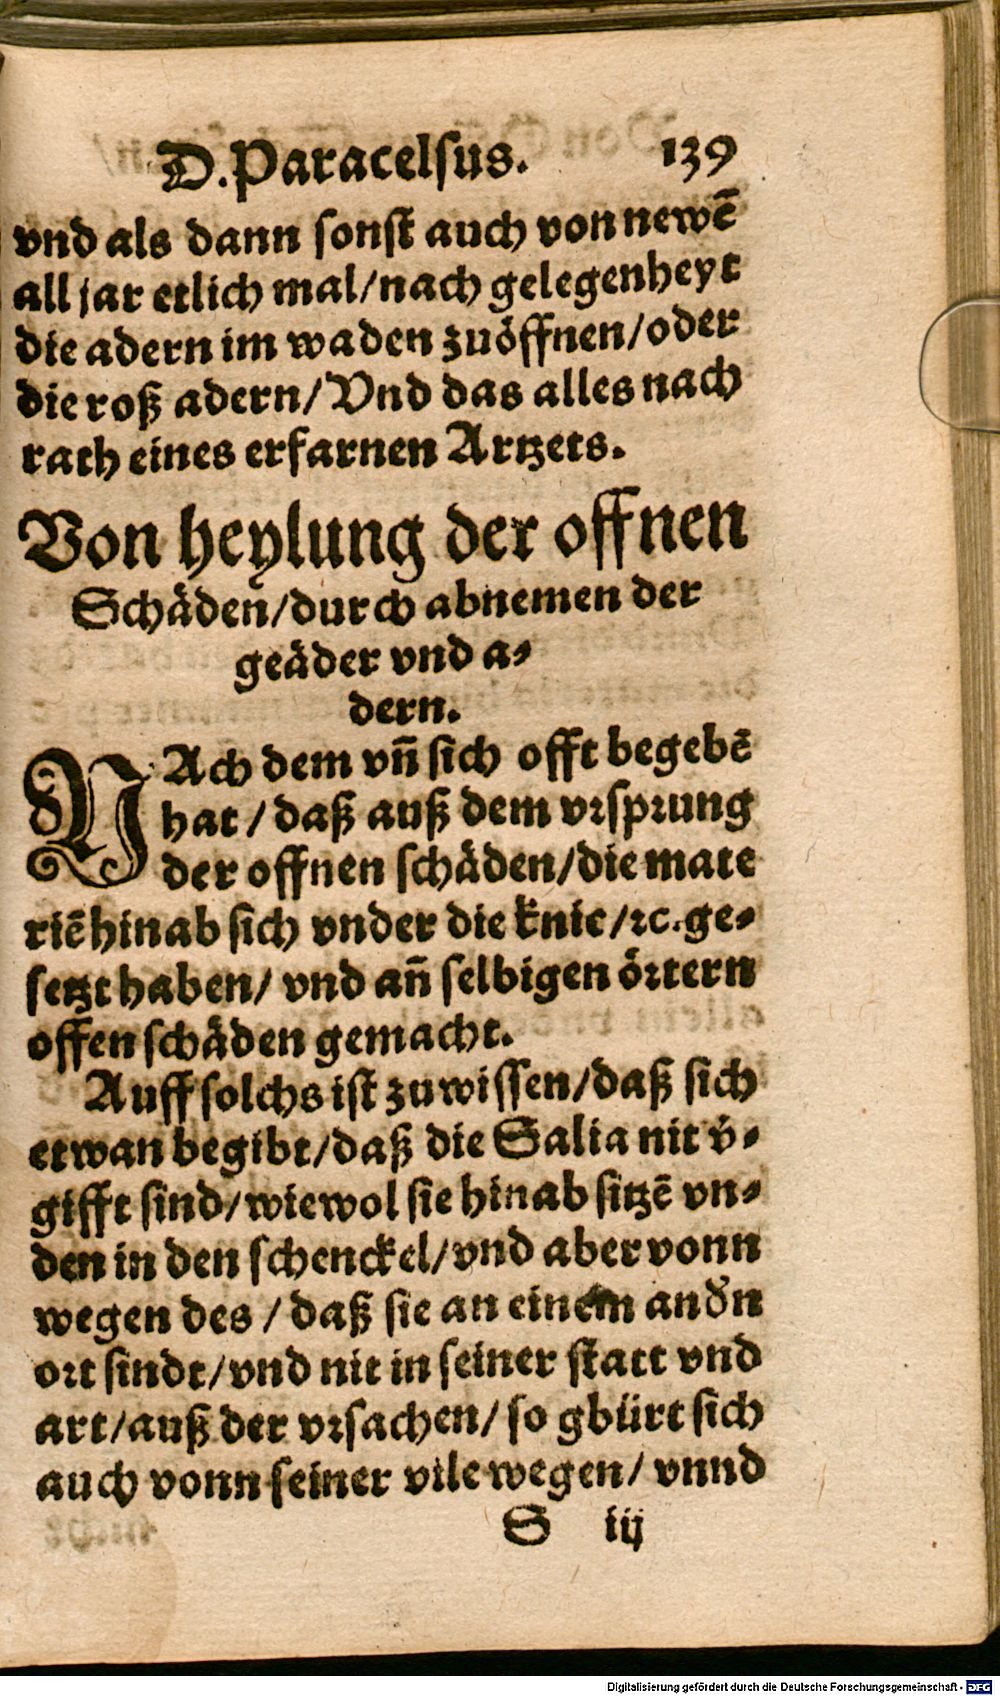 D. Paracelsus. 139
vnd als dann sonst auch von newē
all jar etlich mal/nach gelegenheyt
die adern im waden zuöffnen/oder
die roß adern/Vnd das alles nach
rath eines erfarnen Artzets.
Von heylung der offnen
Schäden/durch abnemen der
geäder vnd a⸗
dern.
NAch dem vn̄ sich offt begebē
hat / daß auß dem vrsprung
der offnen schäden/die mate
riē hinab sich vnder die knie/ꝛc. ge⸗
setzt haben/ vnd an̄ selbigen örtern
offen schäden gemacht.
Auff solchs ist zuwissen/daß sich
etwan begibt/daß die Salia nit v̓⸗
gifft sind/wiewol sie hinab sitzē vn⸗
den in den schenckel/vnd aber vonn
wegen des / daß sie an einem andn̄
ort sindt/vnd nit in seiner statt vnd
art/auß der vrsachen/ so gbürt sich
auch vonn seiner vile wegen/ vnnd
S iij
Digitalisierung gefördert durch die Deutsche Forschungsgemeinschaft - DFG